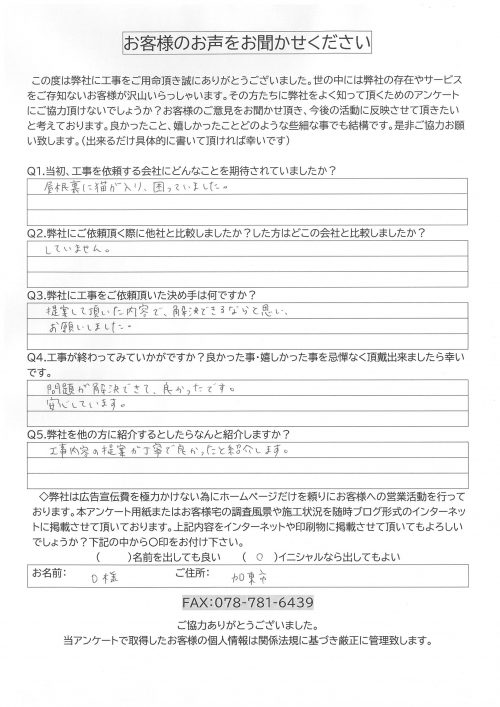 お客様のお声をお聞かせください
この度は弊社に工事をご用命頂き誠にありがとうございました。世の中には弊社の存在やサービス
をご存知ないお客様が沢山いらっしゃいます。その方たちに弊社をよく知って頂くためのアンケート
にご協力頂けないでしょうか？お客様のご意見をお聞かせ頂き、今後の活動に反映させて頂きたい
と考えております。良かったこと、嬉しかったことどのような些細な事でも結構です。是非ご協力お願
い致します。（出来るだけ具体的に書いて頂ければ幸いです）
Q1.当初、工事を依頼する会社にどんなことを期待されていましたか？
屋根裏に猫が入り、困っていました。
Q2.弊社にご依頼頂く際に他社と比較しましたか？した方はどこの会社と比較しましたか？
していません。
Q3.弊社に工事をご依頼頂いた決め手は何ですか？
提案して頂いた内容で、解決できるならと思い、
お願いしました。
Q4.工事が終わってみていかがですか？良かった事・嬉しかった事を忌憚なく頂戴出来ましたら幸い
です。
問題が解決できて、良かったです。
安心しています。
Q5.弊社を他の方に紹介するとしたらなんと紹介しますか？
工事内容の提案が丁寧で良かったと紹介します。
◇弊社は広告宣伝費を極力かけない為にホームページだけを頼りにお客様への営業活動を行って
おります。本アンケート用紙またはお客様宅の調査風景や施工状況を随時ブログ形式のインターネッ
トに掲載させて頂いております。上記内容をインターネットや印刷物に掲載させて頂いてもよろしい
でしょうか？下記の中から〇印をお付け下さい。
（　　）名前を出しても良い　（ ○ ）イニシャルなら出してもよい
お名前：　O様　ご住所：　加東市
FAX：078-781-6439
ご協力ありがとうございました。
当アンケートで取得したお客様の個人情報は関係法規に基づき厳正に管理致します。